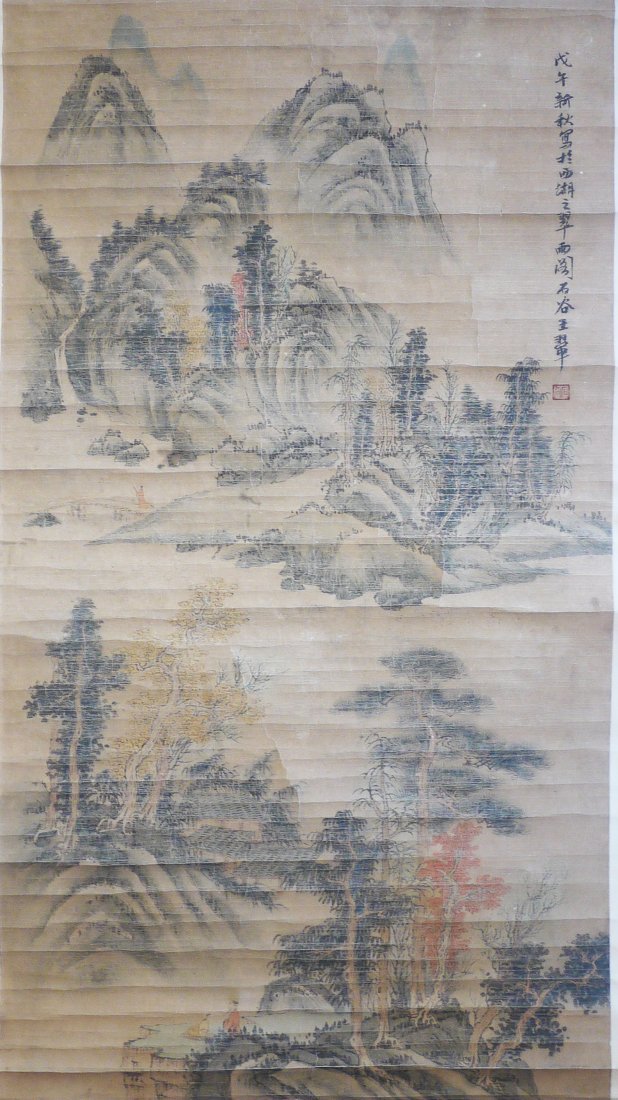 戊午新秋寫於西湖之翠雨閣石谷王翬